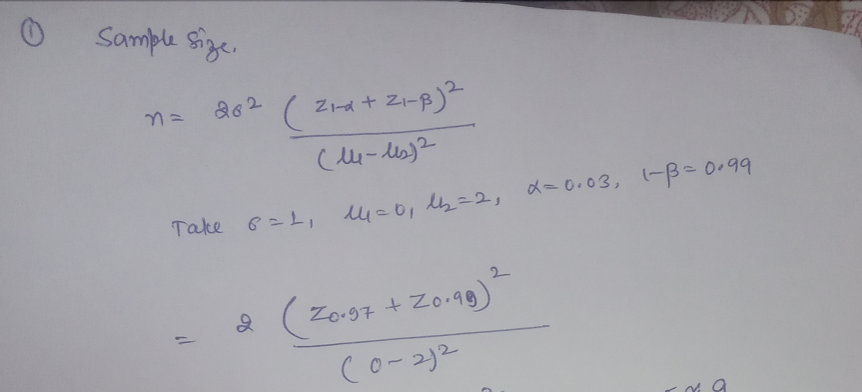 ① Sample Size.
n = 2σ² (Z1-α + Z1-β)² / (μ1 - μ2)²
Take σ = 1, μ1 = 0, μ2 = 2, α = 0.03, 1-β = 0.99
= 2 (Z0.97 + Z0.99)² / (0 - 2)²